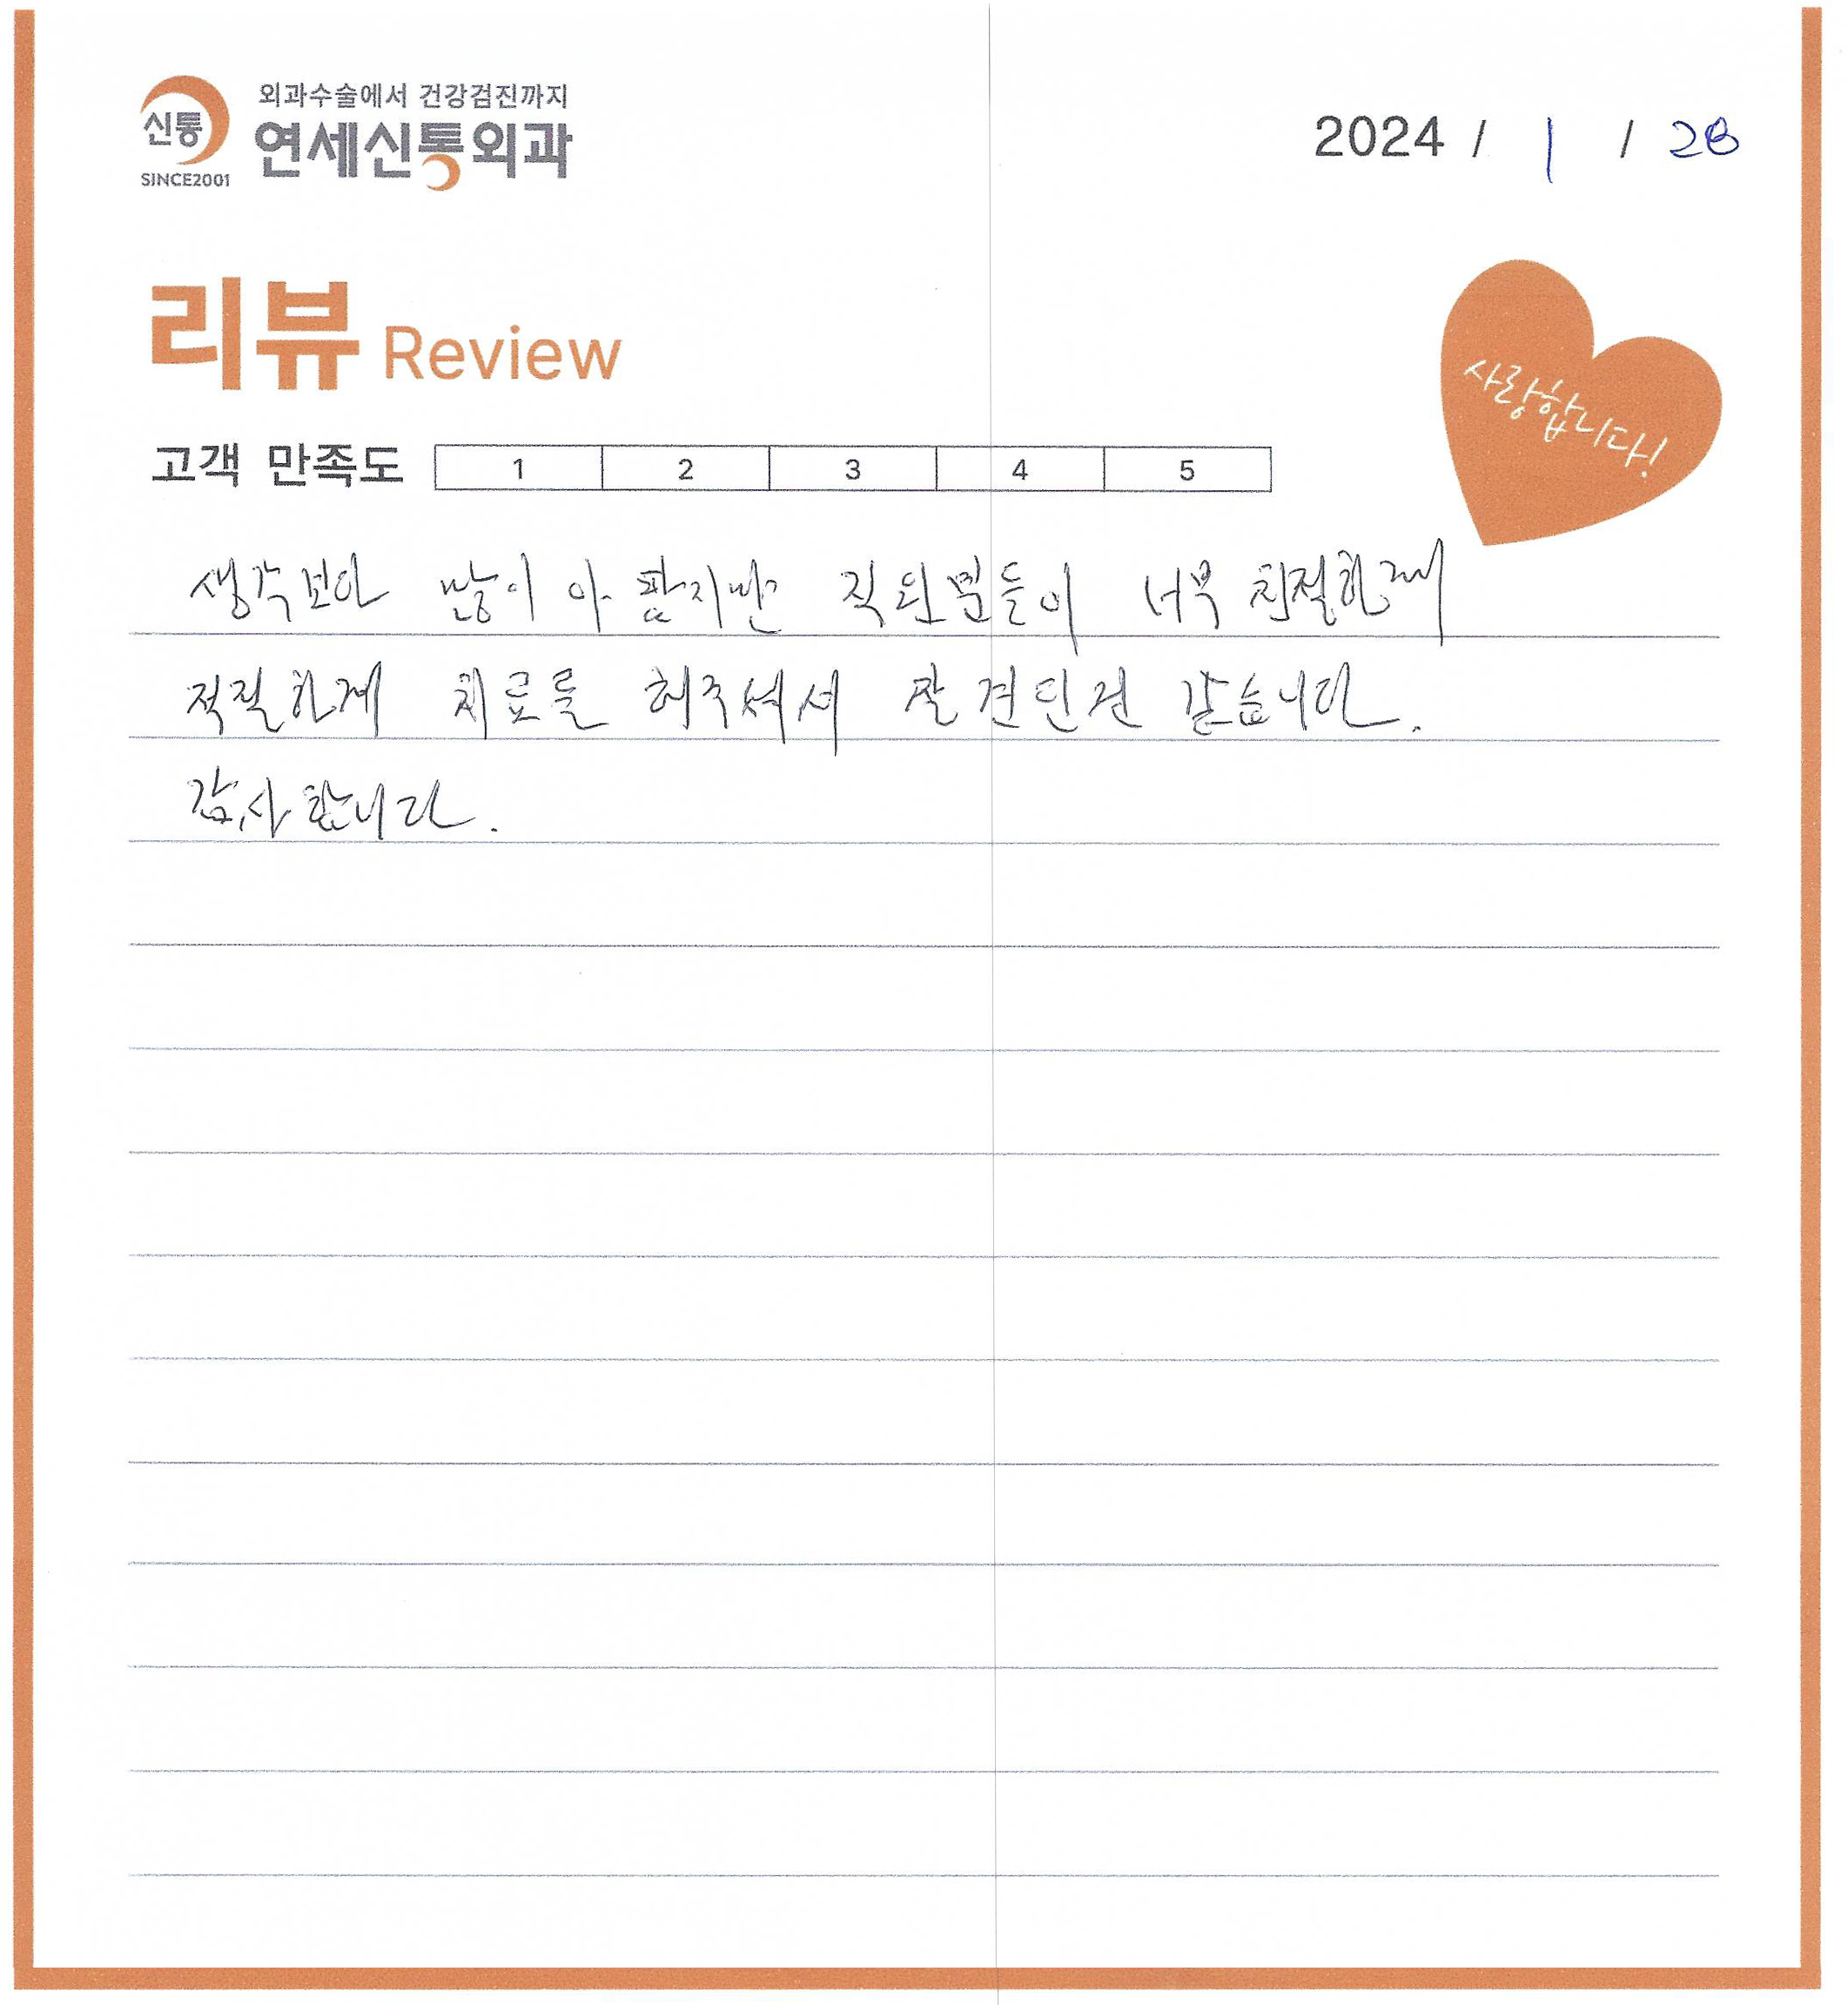 외과수술에서 건강검진까지
신통
연세신통외과
SINCE2001
2024 / 1 / 28
리뷰 Review
사랑합니다!
고객 만족도 1 2 3 4 5
생각보다 많이 아팠지만 직원분들이 너무 친절하게
적절하게 치료를 해주셔서 잘 견딘건 같습니다.
감사합니다.